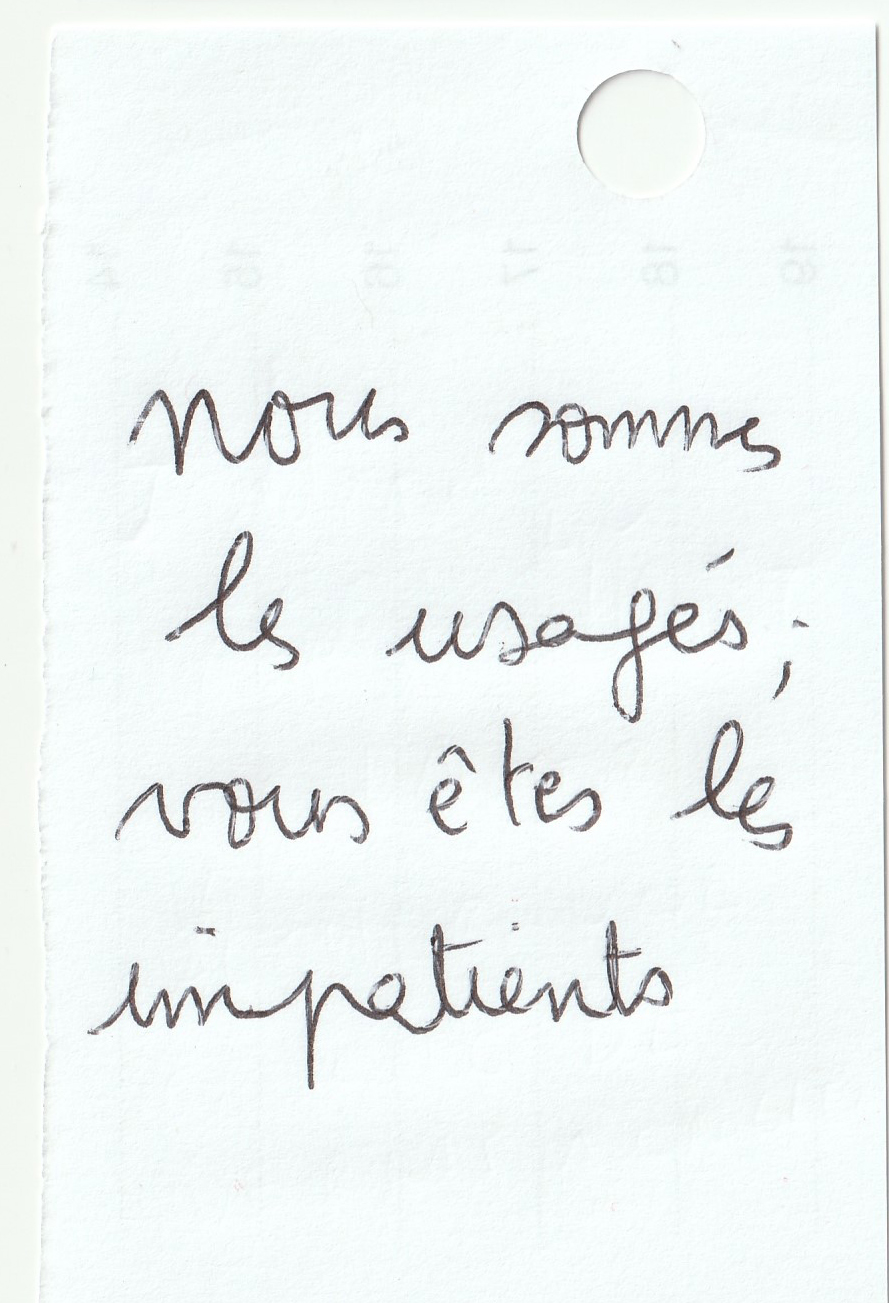 nous sommes
les usagés ;
vous êtes les
impatients